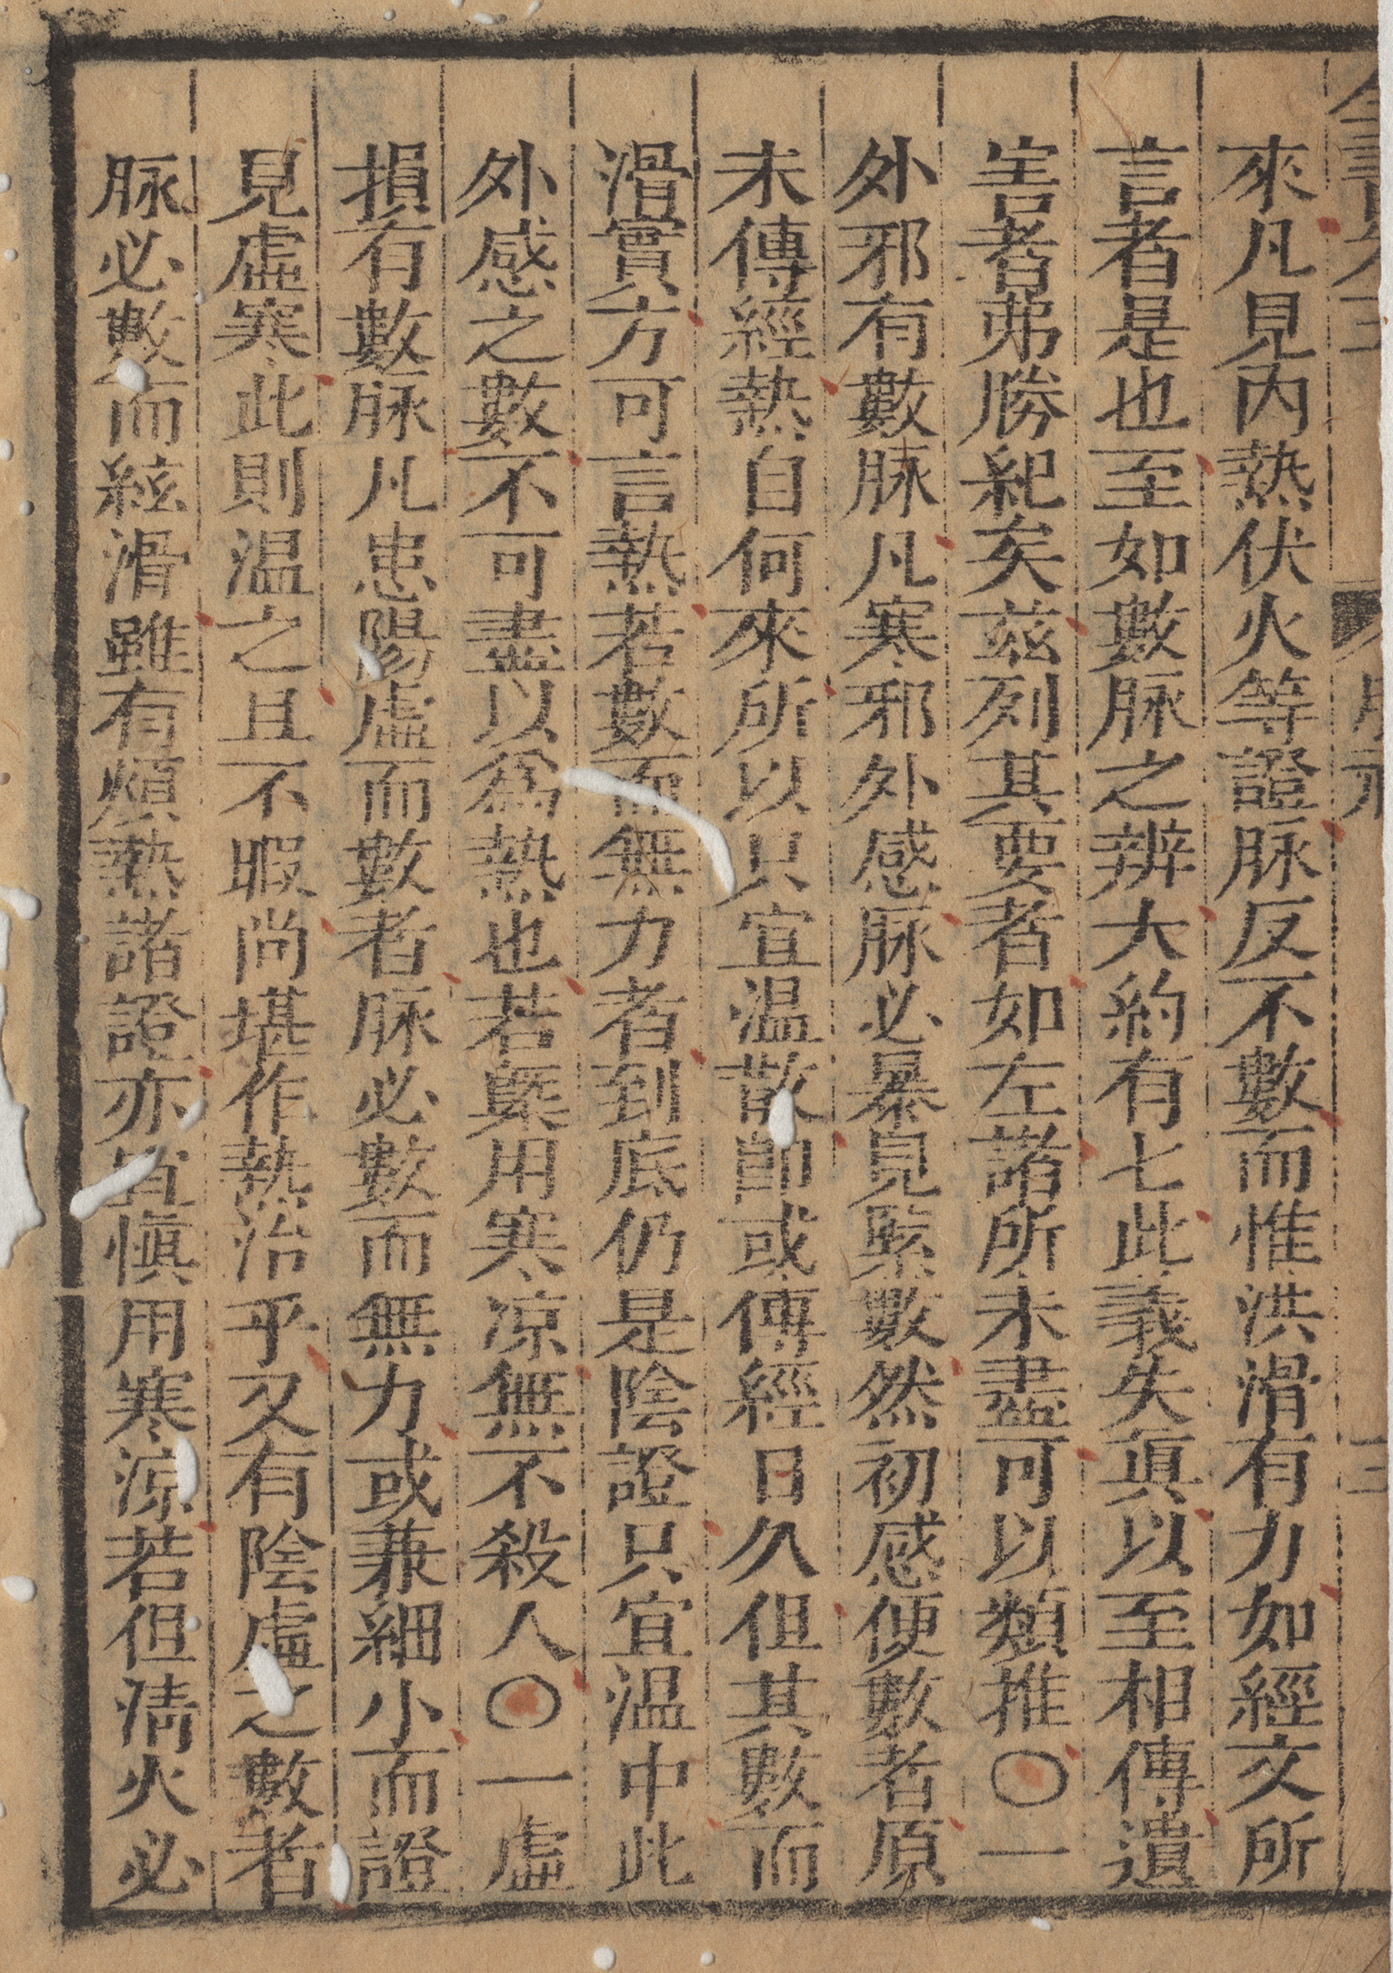 來凡見內熱伏火等證脉反不數而惟洪滑有力如經文所
言者是也至如數脉之辨大約有七此義失眞以至相傳遺
害者弗勝紀矣茲列其要者如左諸所未盡可以類推〇一
外邪有數脉凡寒邪外感脉必暴見緊數然初感便數者原
未傳經熱自何來所以只宜温散卽或傳經日久但其數而
滑實方可言熱若數而無力者到底仍是陰證只宜温中此
外感之數不可盡以爲熱也若槩用寒凉無不殺人〇一虛
損有數脉凡患陽虛而數者脉必數而無力或兼細小而證
見虛寒此則温之且不暇尚堪作熱治乎又有陰虛之數者
脉必數而絃滑雖有煩熱諸證亦宜愼用寒凉若但淸火必